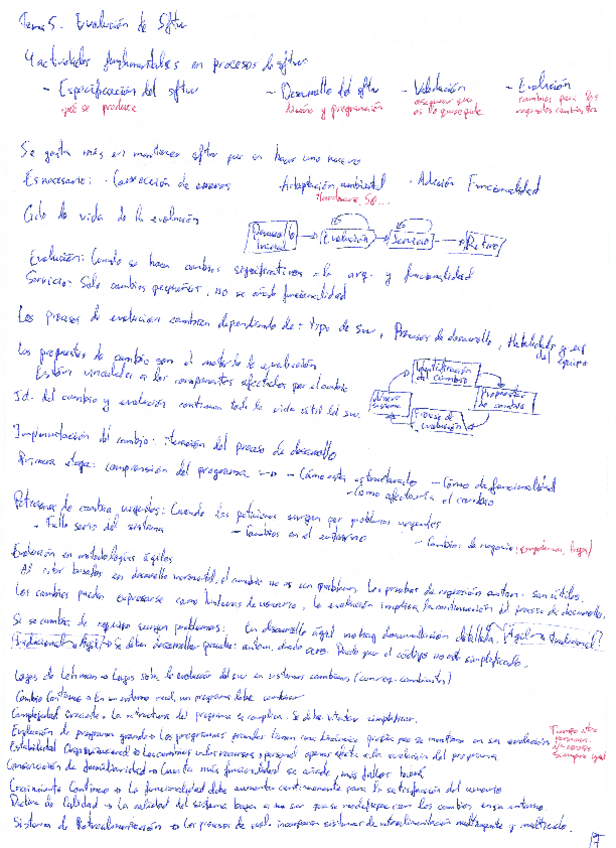 Tema 5. Evolución de Sftw
4 actividades fundamentales en procesos de sftw
- Especificación del sftw - Desarrollo del sftw - Validación - Evolución
qué se produce diseño y programación asegurar que es lo que se pide cambios para los requisitos cambiantes
Se gasta más en mantener sftw que en hacer uno nuevo
Es necesario: · Corrección de errores · Adaptación ambiental · Adición Funcionalidad
Hardware, SO...
Ciclo de vida de la evolución
Desarrollo inicial → Evolución → Servicio → Retiro
Evolución: Cuando se hacen cambios significativos a la arq. y funcionalidad
Servicio: Solo cambios pequeños, no se añade funcionalidad
Los procesos de evolución cambian dependiendo de: tipo de sw, Procesos de desarrollo, Habilidades y exp del equipo
Las propuestas de cambio son el motor de la evolución
Están vinculadas a los componentes afectados por el cambio
Id. del cambio y evolución continúan toda la vida útil del sw.
Identificación del cambio
Propuestas de cambio
Proceso de evolución
Nuevo sistema
Implementación del cambio: iteración del proceso de desarrollo
Primera etapa: comprensión del programa → - Cómo está estructurado - Cómo da funcionalidad
- Cómo afectaría el cambio
Peticiones de cambio urgentes: Cuando las peticiones surgen por problemas urgentes
- Fallo serio del sistema - Cambios en el entorno - Cambios de negocio:
Evolución en metodologías ágiles
Al estar basados en desarrollo incremental, el cambio no es un problema. Las pruebas de regresión autom. son útiles.
Los cambios pueden expresarse como historias de usuario, la evolución implica la continuación del proceso de desarrollo.
Si se cambia de equipo surgen problemas: En desarrollo ágil no hay documentación detallada. Ágil → Tradicional
Tradicional → Ágil → Se deben desarrollar pruebas autom. desde cero. Puede que el código no esté simplificado.
Leyes de Lehman → Leyes sobre la evolución del sw en sistemas cambiantes
Cambio Continuo → En un entorno real, un programa debe cambiar
Complejidad creciente → La estructura del programa se complica. Se debe intentar simplificar.
Evolución de programa grande → Los programas grandes tienen una dinámica propia que se mantiene en su evolución
Estabilidad Organizacional → Los cambios en los recursos o personal apenas afecta a la evolución del programa
Conservación de familiaridad → Cuanta más funcionalidad se añade, más fallos habrá
Crecimiento Continuo → La funcionalidad debe aumentar continuamente para la satisfacción del usuario
Declive de Calidad → La calidad del sistema bajará a no ser que se modifique con los cambios en su entorno.
Sistema de Retroalimentación → Los procesos de evol. incorporan sistemas de retroalimentación multiagente y multiciclo.
17